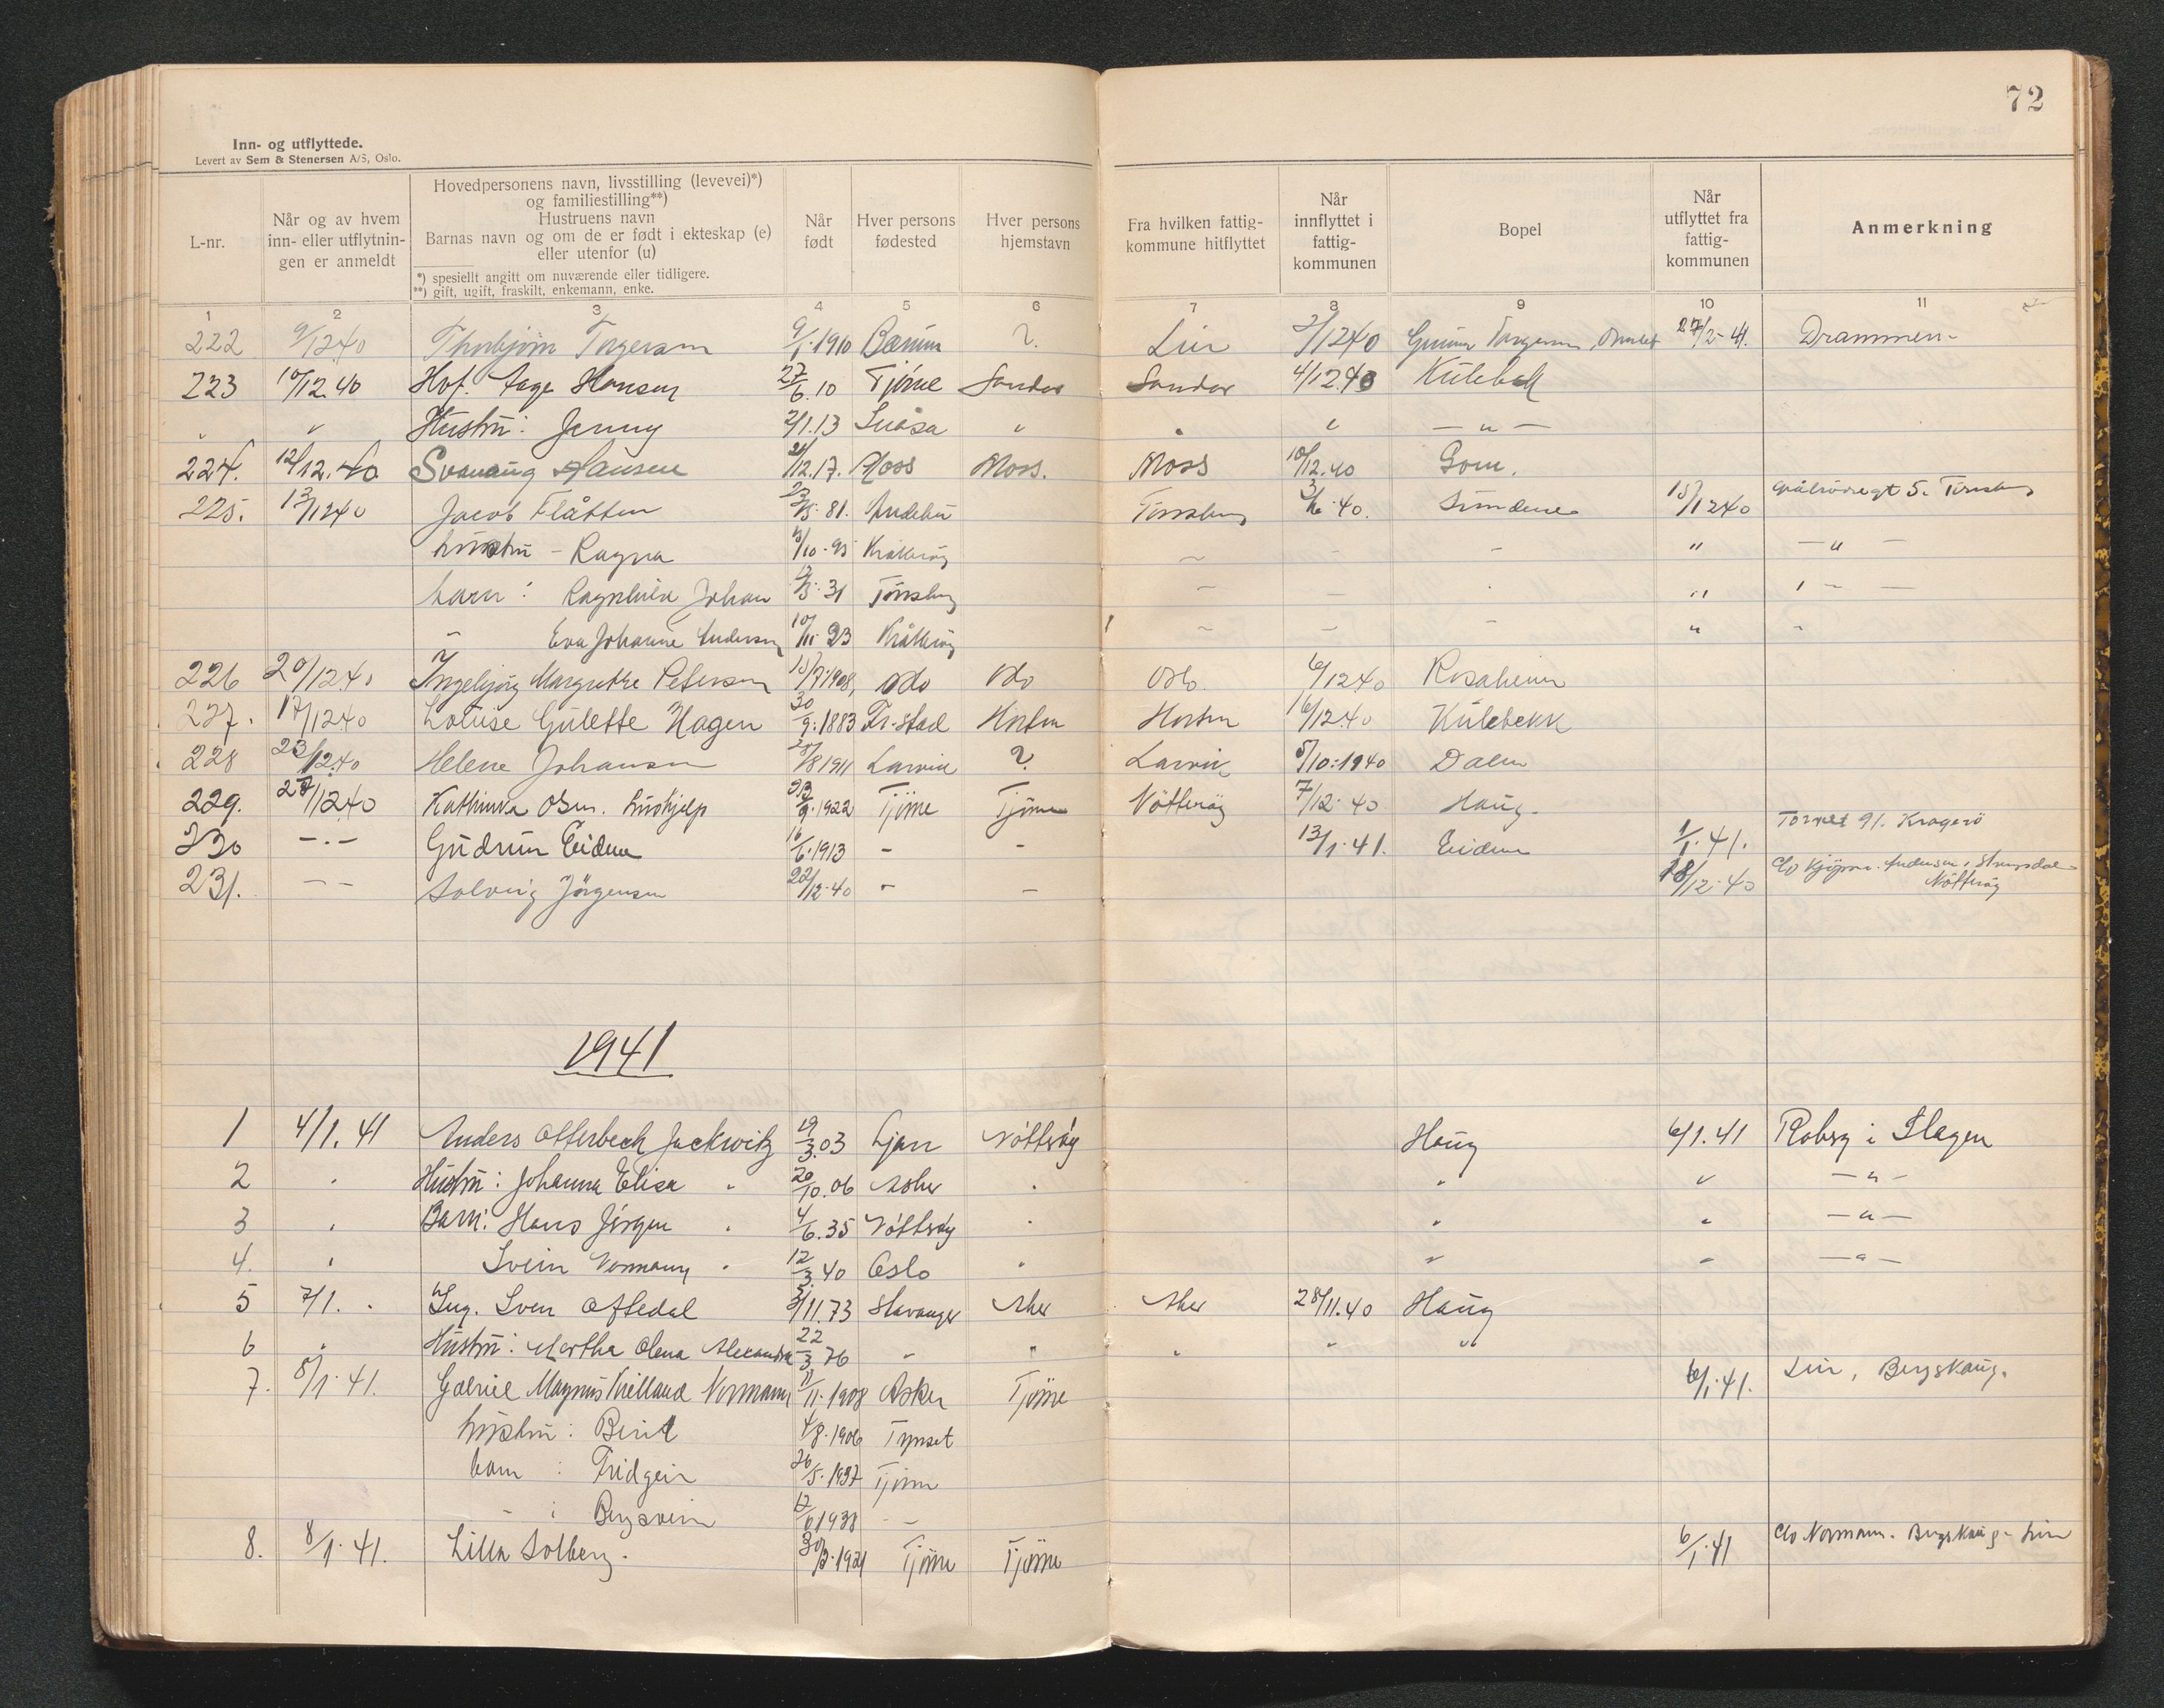 72
Inn- og utflyttede.
Levert av Sem & Stenersen A/S, Oslo.
L-nr.
Når og av hvem inn- eller utflytnin- gen er anmeldt
Hovedpersonens navn, livsstilling (levevei)*)
og familiestilling**)
Hustruens navn
Barnas navn og om de er født i ekteskap (e)
eller utenfor (u)
*) spesielt angitt om nuværende eller tidligere.
**) gift, ugift, fraskilt, enkemann, enke.
Når født
Hver persons fødested
Hver persons hjemstavn
Fra hvilken fattig- kommune hitflyttet
Når innflyttet i fattig- kommunen
Bopel
Når utflyttet fra fattig- kommunen
Anmerkning
1 2 3 4 5 6 7 8 9 10 11
222 9/12 40 Thorbjørn Torgersen 9/1.1910 Bærum ? Lier 3/12 40 27/2-41. Drammen-
223 10/12.40 Hof. Aage Hansen 27/6.10 Tjöme Sandar Sandar 4/12.40 Külebekk
" " Hustrü: Jenny 2/1.13 Snåsa " " " — " —
224. 12/12.40 Svanaüg Hansen 21/12.17. Moss Moss. Moss 10/12.40 Gom.
225. 13/12 40 Jacob Flåtten 23/5.81. Andebü Tönsberg 3/6.40. Sündene 15/12 40 5. Tönsberg
hüstrü - Ragna /10.95 Kråkeröy ~ - - " — " —
barn: Ragnhild Johan /5.31 Tönsberg - — . " " - —
- Eva Johanne Andersen 10/11.23 Kråkeröy - - - " -
226 20/12 40 Ingebjörg Margrethe Petersen 15/7.1908, Oslo Oslo Oslo 6/12 40 Rosaheim
227. 17/12 40 Lovise Gülette Hagen 30/9.1883 Fr.stad Horten Horten 16/12.40 Külebekk
228 23/12.40 Helene Johansen /8 1911 Larvik ? Larvik 5/10.1940 Dalen
229. 27/12 40 Kathinka Olsen. hüshjelp 23/9.1922 Tjöme Tjöme Nötteröy 7/12.40 Haüg.
230 -.- Güdrün Eidene 16/6.1913 - - 13/1.41. Eidene 1/1.41. Torvet 91. Kragerö
231. -- Solveig Jörgensen 22/12.40 - - 18/12.40 c/o Kjöpm. Andersen, Strengsdal Nötteröy
1941
1 4/1.41 Anders Otterbech Jackwitz 19/3.03 Ljan Nötteröy Haüg 6/1.41 Roberg i Slagen
2 " Hüstrü: Johanna Elise " 20/10.06 Asker " " " — " -
3 " Barn: Hans Jörgen " 4/6.35 Nötteröy " " " — " —
4. " Svein Normann " 12/3.40 Oslo " " " — " —
5 7/1. " Ing. Sven Oftedal 3/11.73 Stavanger Aker Aker 28/11.40 Haüg
6 " Hüstrü: Martha Olena Alexandra 22/3.76 " " " " "
7. 8/1.41. Gabriel Magnüs Kielland Normann 11/11.1908 Asker Tjöme 6/1.41. Lier, Bergskaüg.
hüstrü: Berit 4/8.1906 Tynset
barn: Fridgeir 26/5.1937 Tjöme
- : Bergsvein 12/6 1938 - -
8. 8/1.41. Lilla Solberg. 30/3.1921 Tjöme Tjöme 6/1.41 c/o Normann. Bergskaüg - Lier